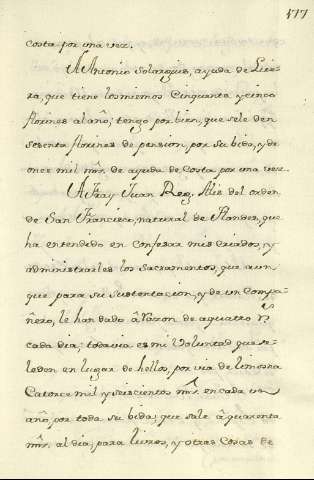 177
costa por una vez.
A Antonio Solargus, ayuda de Litera
ra, que tiene los miemos Cinquanta y cinco
florines al año; tengo por bien, que se le den
sesenta florines de pension, por su bida, y de
once mil mrs. de ayuda de costa por una vez.
A Fray Juan Reg. Alis del orden
de San Francisco, natural de Flandes, que
ha entendido en confesar mis criados, y
administrarles los Sacramentos, que aun
que para su sustentacion, y de un Compa
ñero, le han dado â razon de aquatro rs
cada dia; todavia es mi Voluntad que se
le den en lugar de hellos, por via de limosna
Catorce mil y seiscientos mrs. en cada un
año, por toda su bida; que sale â quarenta
mrs. al dia, para livros, y otras Cosas de